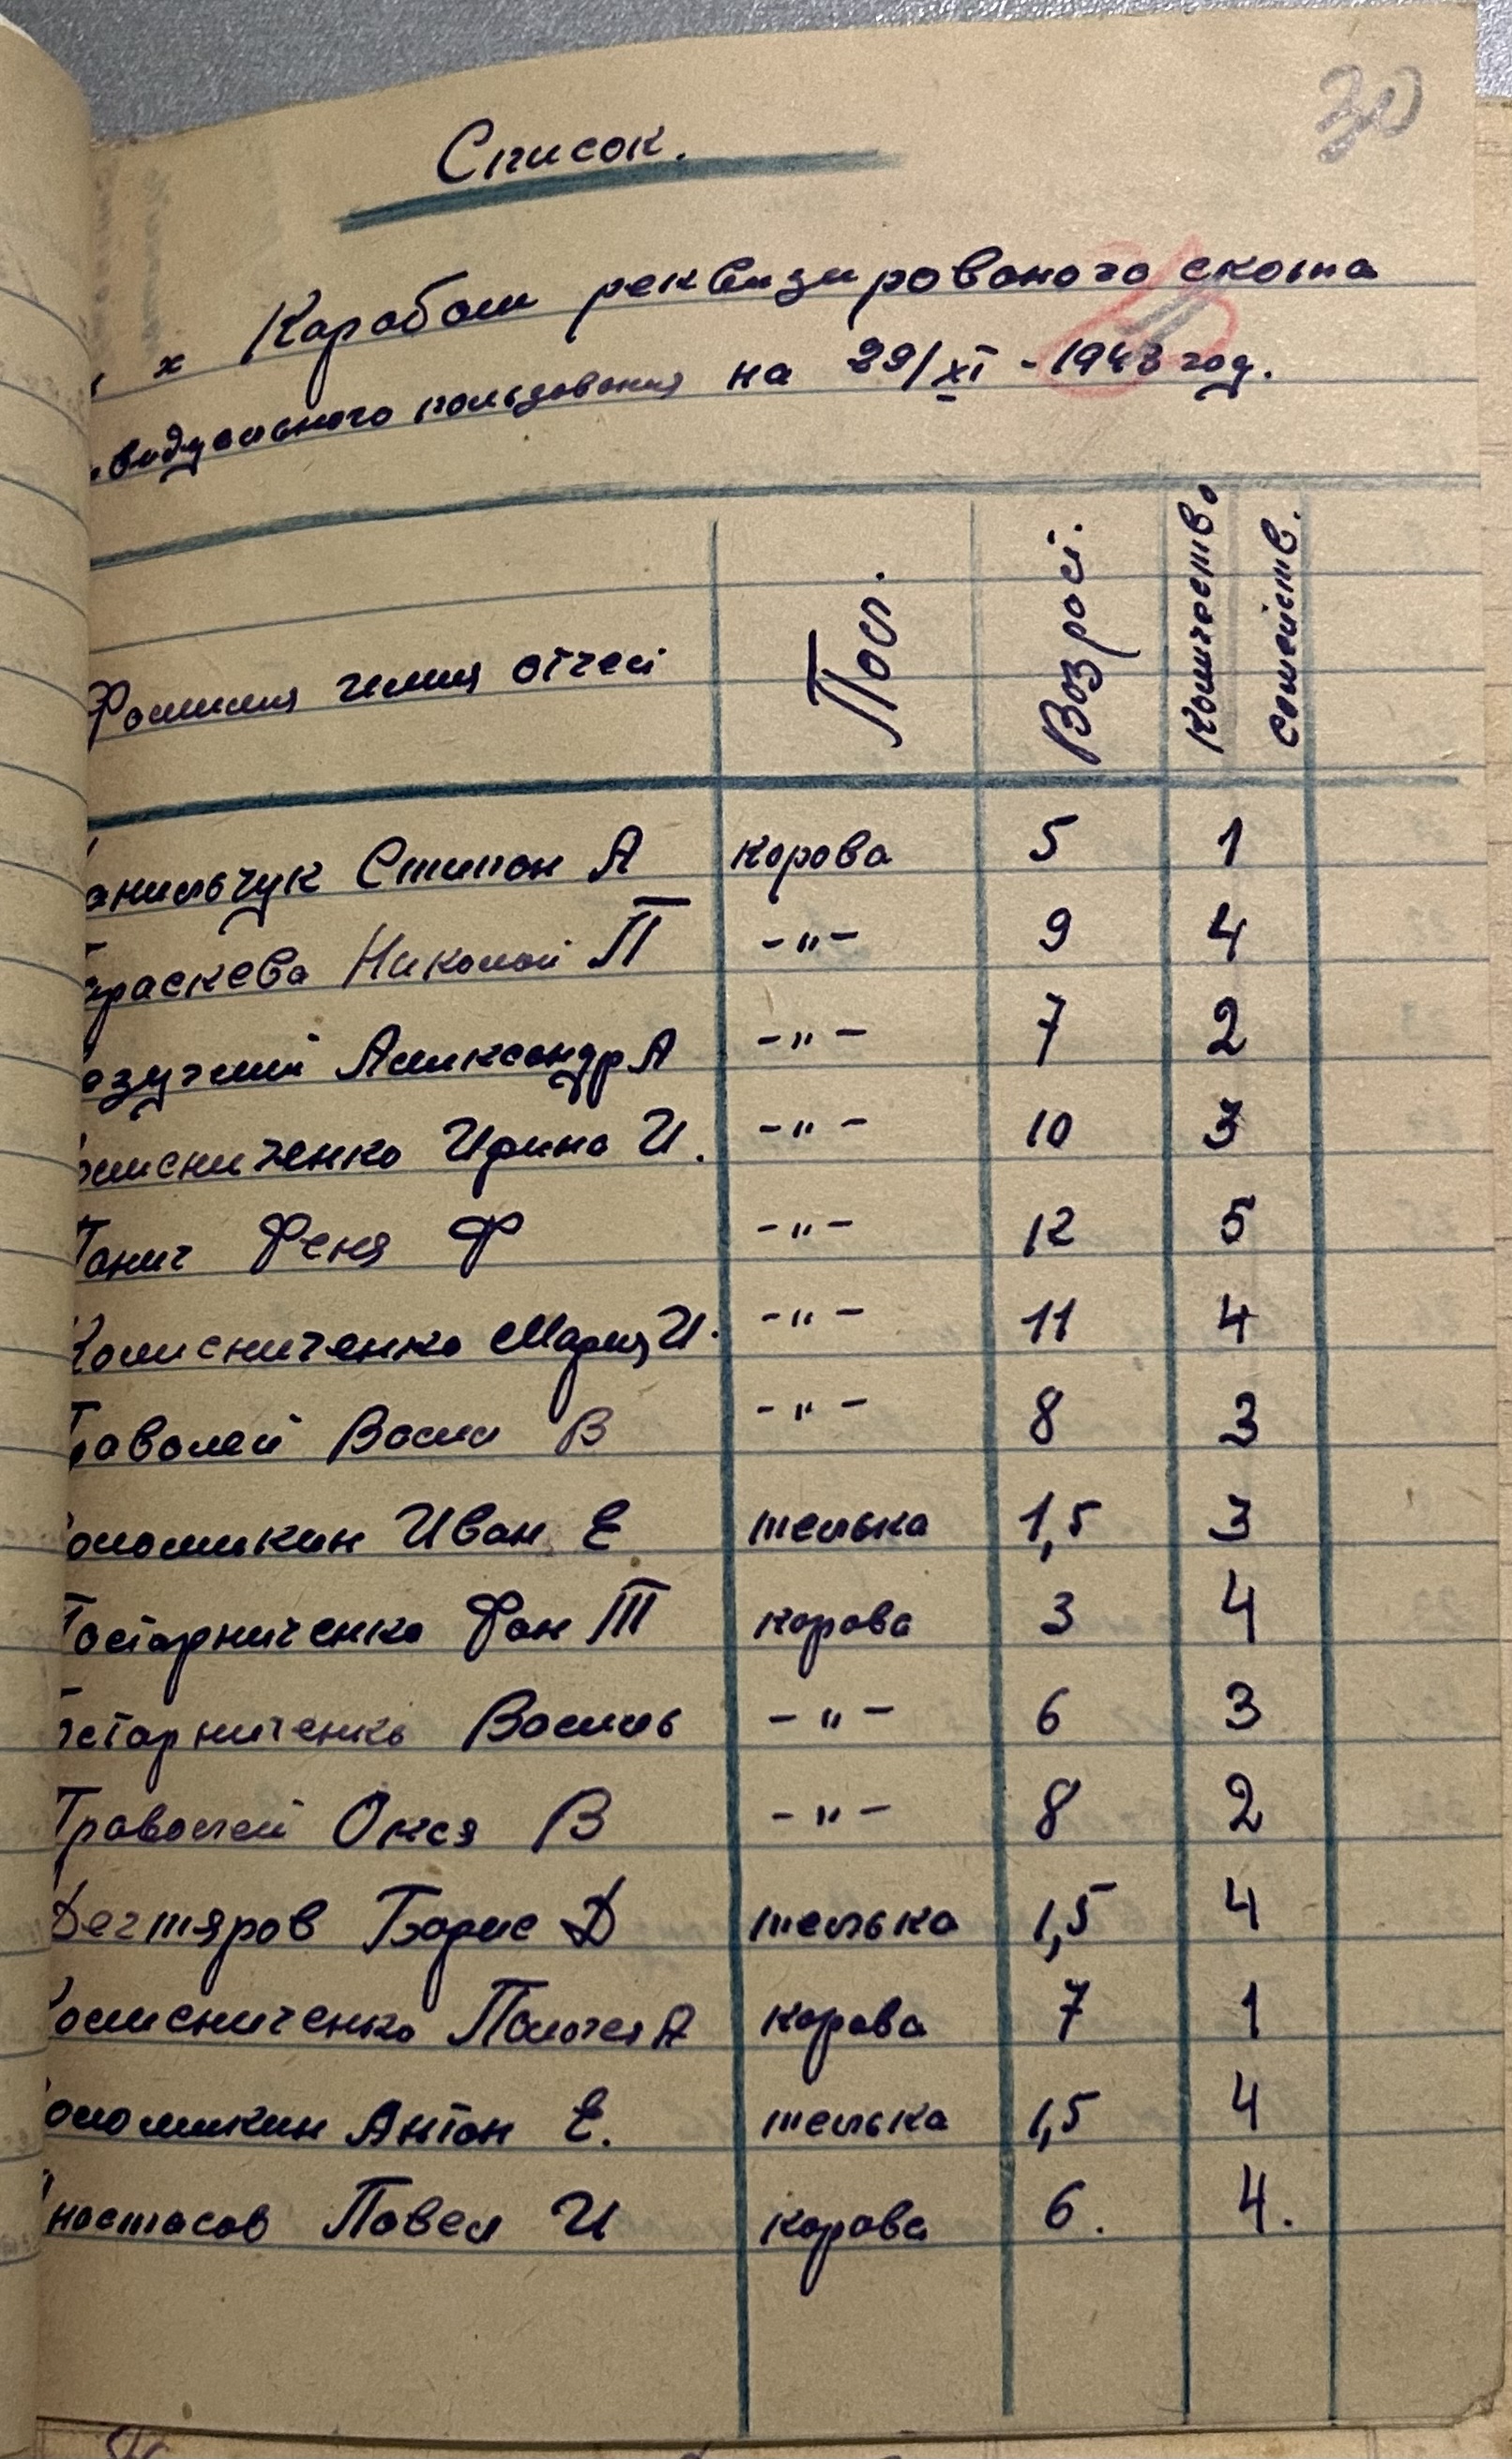 30
Список.
х Карабаш реквизированого скота
видуального пользования на 29/XI - 1943 год.
Фамилия имия отчест Пол. Возрост. Количество семейств.
анильчук Стипон А корова 5 1
араскева Николай П -"- 9 4
езучий Алиександр А -"- 7 2
олисниченко Ирина И. -"- 10 3
Панич Феня Ф -"- 12 5
Колисниченко Мария И. -"- 11 4
Траволей Васил В -"- 8 3
оломикин Иван Е телька 1,5 3
Постарниченко Фан Т корова 3 4
старниченко Василь -"- 6 3
Траволей Окся В -"- 8 2
Дегтяров Борис Д телька 1,5 4
олисниченко Палогея А корова 7 1
оломикин Антон Е. телька 1,5 4
настасов Павел И корова 6. 4.